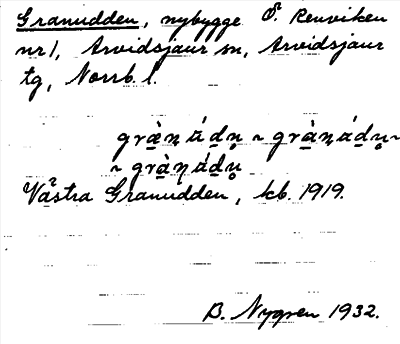 Granudden, nybygge Ö. Renviken
nr 1, Arvidsjaur sn, Arvidsjaur
tg, Norrb. l.
Västra Granudden, kb. 1919.
B. Nygren 1932.